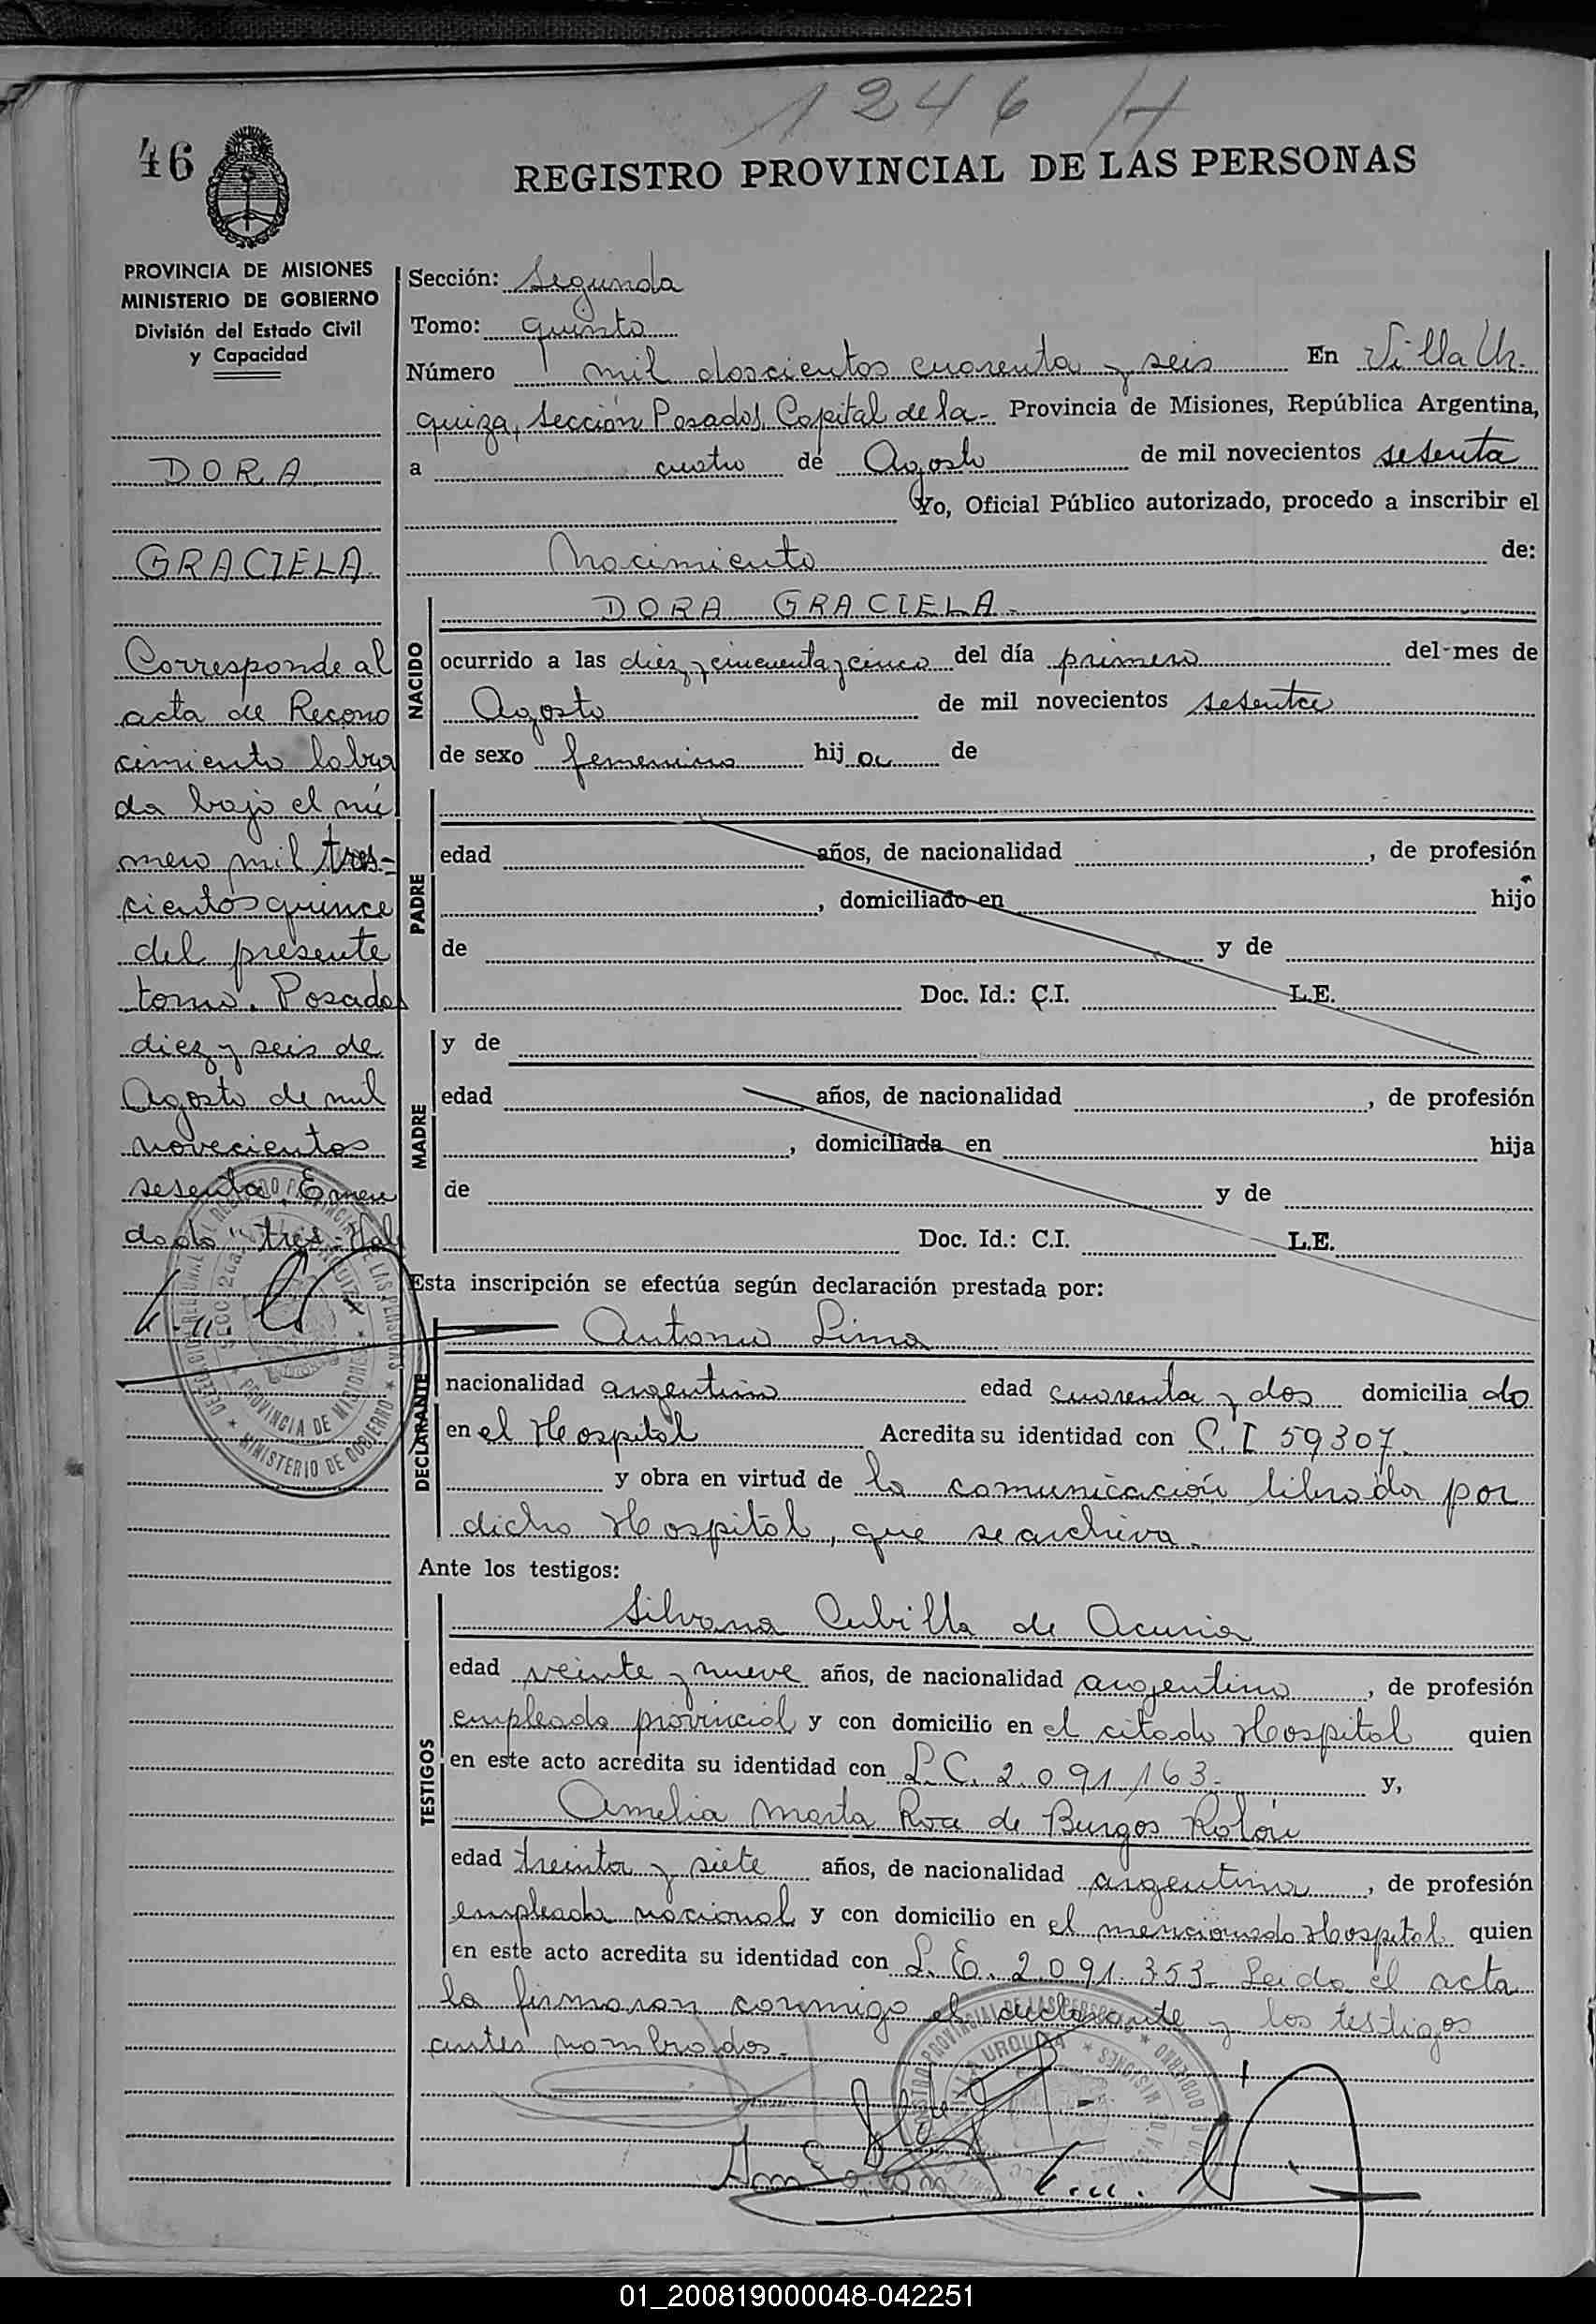 1246 H
46
REGISTRO PROVINCIAL DE LAS PERSONAS
PROVINCIA DE MISIONES
MINISTERIO DE GOBIERNO
División del Estado Civil
y Capacidad
DORA
GRACIELA
Corresponde al
acta de Recono
cimiento labra
da bajo el nú
mero mil tres-
cientos quince
del presente
tomo. Posadas
diez y seis de
Agosto de mil
novecientos
sesenta. Enmen
dado "tres" Vale
Sección: Segunda
Tomo: quinto
Número mil doscientos cuarenta y seis En Villa Ur
quiza, sección Posadas, Capital de la- Provincia de Misiones, República Argentina,
a cuatro de Agosto de mil novecientos sesenta
Yo, Oficial Público autorizado, procedo a inscribir el
Nacimiento de:
NACIDO
DORA GRACIELA
ocurrido a las diez y cincuenta y cinco del día primero del mes de
Agosto de mil novecientos sesenta
de sexo femenino hija de
PADRE
edad años, de nacionalidad , de profesión
, domiciliado en hijo
de y de
Doc. Id.: C.I. L.E.
MADRE
y de
edad años, de nacionalidad , de profesión
, domiciliada en hija
de y de
Doc. Id.: C.I. L.E.
Esta inscripción se efectúa según declaración prestada por:
DECLARANTE
Antonio Lima
nacionalidad argentino edad cuarenta y dos domiciliado
en el Hospital Acredita su identidad con C.I 59307
y obra en virtud de la comunicación librada por
dicho Hospital, que se archiva.
Ante los testigos:
TESTIGOS
Silvana Cubilla de Acuña
edad veinte y nueve años, de nacionalidad argentina , de profesión
empleada provincial y con domicilio en el citado Hospital quien
en este acto acredita su identidad con L.C. 2.091.163- y,
Amelia Marta Roa de Burgos Rolón
edad treinta y siete años, de nacionalidad argentina , de profesión
empleada nacional y con domicilio en el mencionado Hospital quien
en este acto acredita su identidad con L.E. 2.091.353- Leida el acta
la firmaron conmigo el declarante y los testigos
antes nombrados.-
01_200819000048-042251